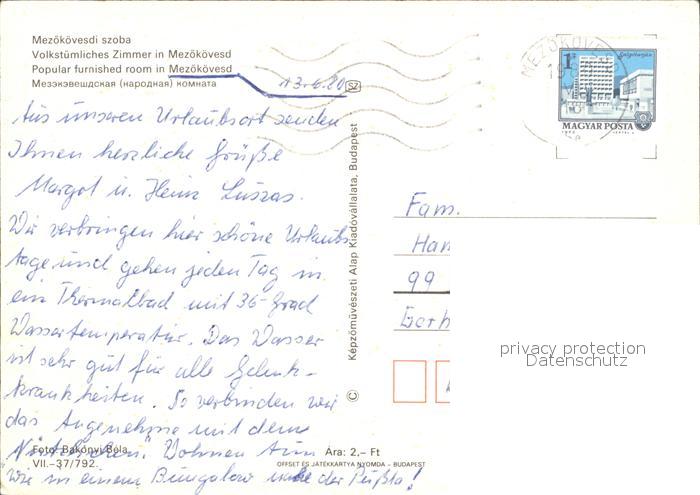 Mezőkövesdi szoba
Volkstümliches Zimmer in Mezőkövesd
Popular furnished room in Mezőkövesd
Мезэкэвешдская (народная) комната
13.6.80
SZ
Aus unseren Urlaubsort senden
Ihnen herzliche Grüße
Margot u. Heinz Luszas.
Wir verbringen hier schöne Urlaubs
tage und gehen jeden Tag in
ein Thermalbad mit 36-Grad
Wassertemperatur. Das Wasser
ist sehr gut für alle Gelenk-
krankheiten. So verbinden wir
das Angenehme mit dem
Nützlichen. Wohnen tun
wir in einem Bungalow nahe der Pußta!
Foto: Bakonyi Béla
VII.-37/792.
Ára: 2,- Ft
OFFSET ÉS JÁTÉKKÁRTYA NYOMDA - BUDAPEST
© Képzőművészeti Alap Kiadóvállalata, Budapest
MEZŐKÖVESD
1 Ft
MAGYAR POSTA
Fam.
Han
99
Gorh
privacy protection
Datenschutz